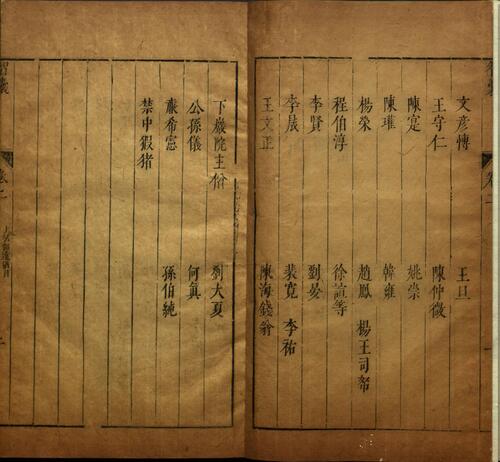 文彥博 王旦
王守仁 陳仲微
陳寔 姚崇
陳瓘 韓雍
楊榮 趙鳳 楊王司帑
程伯淳 徐誼等
李賢 劉晏
李晟 裴寬 李祐
王文正 陳海錢翁
下巖院主僧 劉大夏
公孫儀 何真
嚴希憲 孫伯純
禁中猳猪
卷二